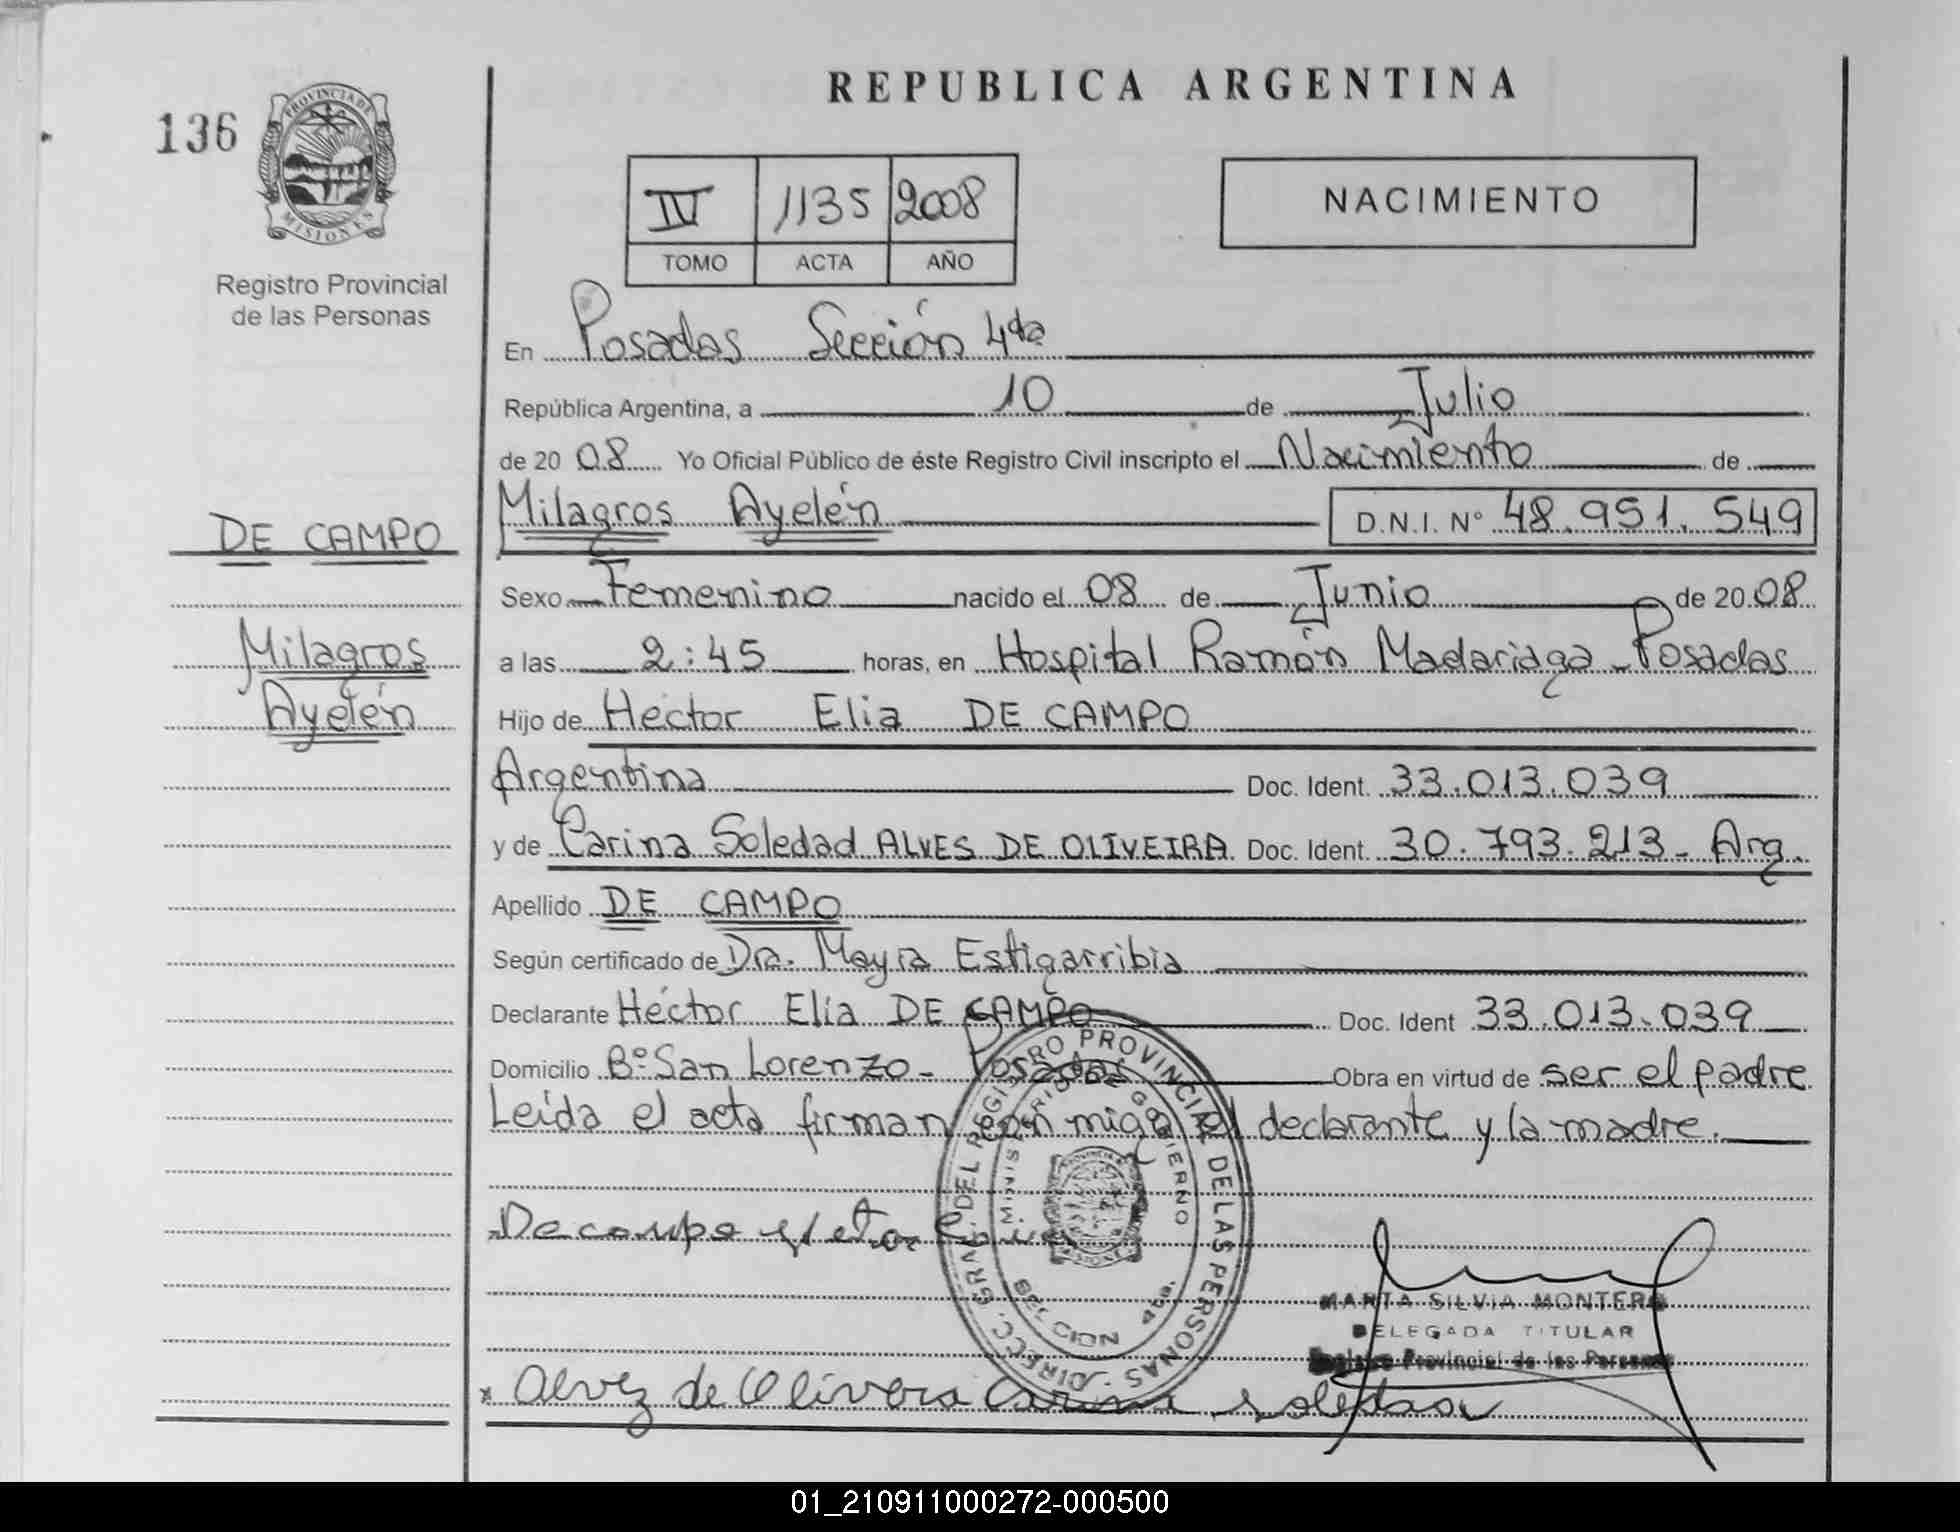 136
PROVINCIA DE
MISIONES
Registro Provincial
de las Personas
REPUBLICA ARGENTINA
IV 1135 2008
TOMO ACTA AÑO
NACIMIENTO
En Posadas Sección 4ta
República Argentina, a 10 de Julio
de 2008 Yo Oficial Público de éste Registro Civil inscripto el Nacimiento de
Milagros Ayelén D.N.I. Nº 48.951.549
DE CAMPO
Milagros
Ayelén
Sexo Femenino nacido el 08 de Junio de 2008
a las 2:45 horas, en Hospital Ramón Madariaga - Posadas
Hijo de Héctor Elia DE CAMPO
Argentina Doc. Ident. 33.013.039
y de Carina Soledad ALVES DE OLIVEIRA Doc. Ident. 30.793.213 - Arg.
Apellido DE CAMPO
Según certificado de Dra. Mayra Estigarribia
Declarante Héctor Elia DE CAMPO Doc. Ident 33.013.039
Domicilio Bº San Lorenzo - Posadas Obra en virtud de ser el padre
Leída el acta firman con migo el declarante y la madre.
DIRECC. GRAL. DEL REGISTRO PROVINCIAL DE LAS PERSONAS
MINISTERIO DE GOBIERNO
De campo
MARTA SILVIA MONTERO
DELEGADA TITULAR
Registro Provincial de las Personas
x Alvez de Olivera Carina soledad
01_210911000272-000500